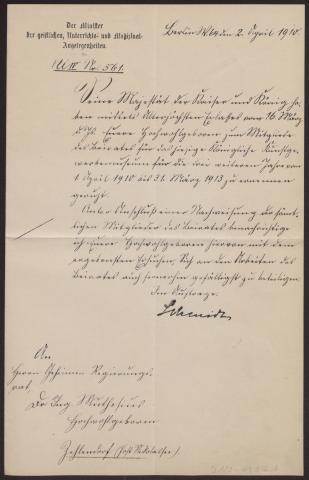 Der Minister
der geistlichen, Unterrichts- und Medizinal-
Angelegenheiten.
Berlin W. 64 den 2. April 1910.
U IV Nr. 561.
Seine Majestät der Kaiser und König ha-
ben mittels Allerhöchsten Erlasses vom 16. März
d. Js. Euere Hochwohlgeboren zum Mitgliede
des Beirates für das hiesige Königliche Kunstge-
werbemuseum für die drei weiteren Jahre vom
1. April 1910 bis 31. März 1913 zu ernennen
geruht.
Unter Anschluß einer Nachweisung der sämt-
lichen Mitglieder des Beirates benachrichtige
ich Euere Hochwohlgeboren hiervon mit dem
ergebensten Ersuchen, Sich an den Arbeiten des
Beirates auch fernerhin gefälligst zu beteiligen.
Im Auftrage.
Schmidt
An
Herrn Geheimen Regierungs-
rat
Dr Ing. Muthesius
Hochwohlgeboren
Zehlendorf (Post Nikolassee).